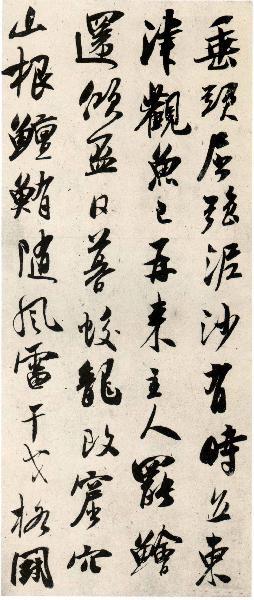 垂頭屈強泥沙有時立東
津觀魚已再來主人罷鱠
還傾盃日暮蛟龍改窟穴
山根鱣鮪隨風雷干戈格鬭